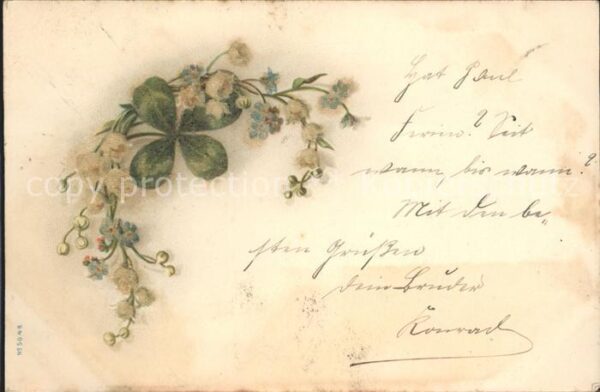 Hat Paul
Ferien? Seit
wann, bis wann?
Mit den be„
sten Grüßen
dein Bruder
Konrad
No 5648
copyright protection